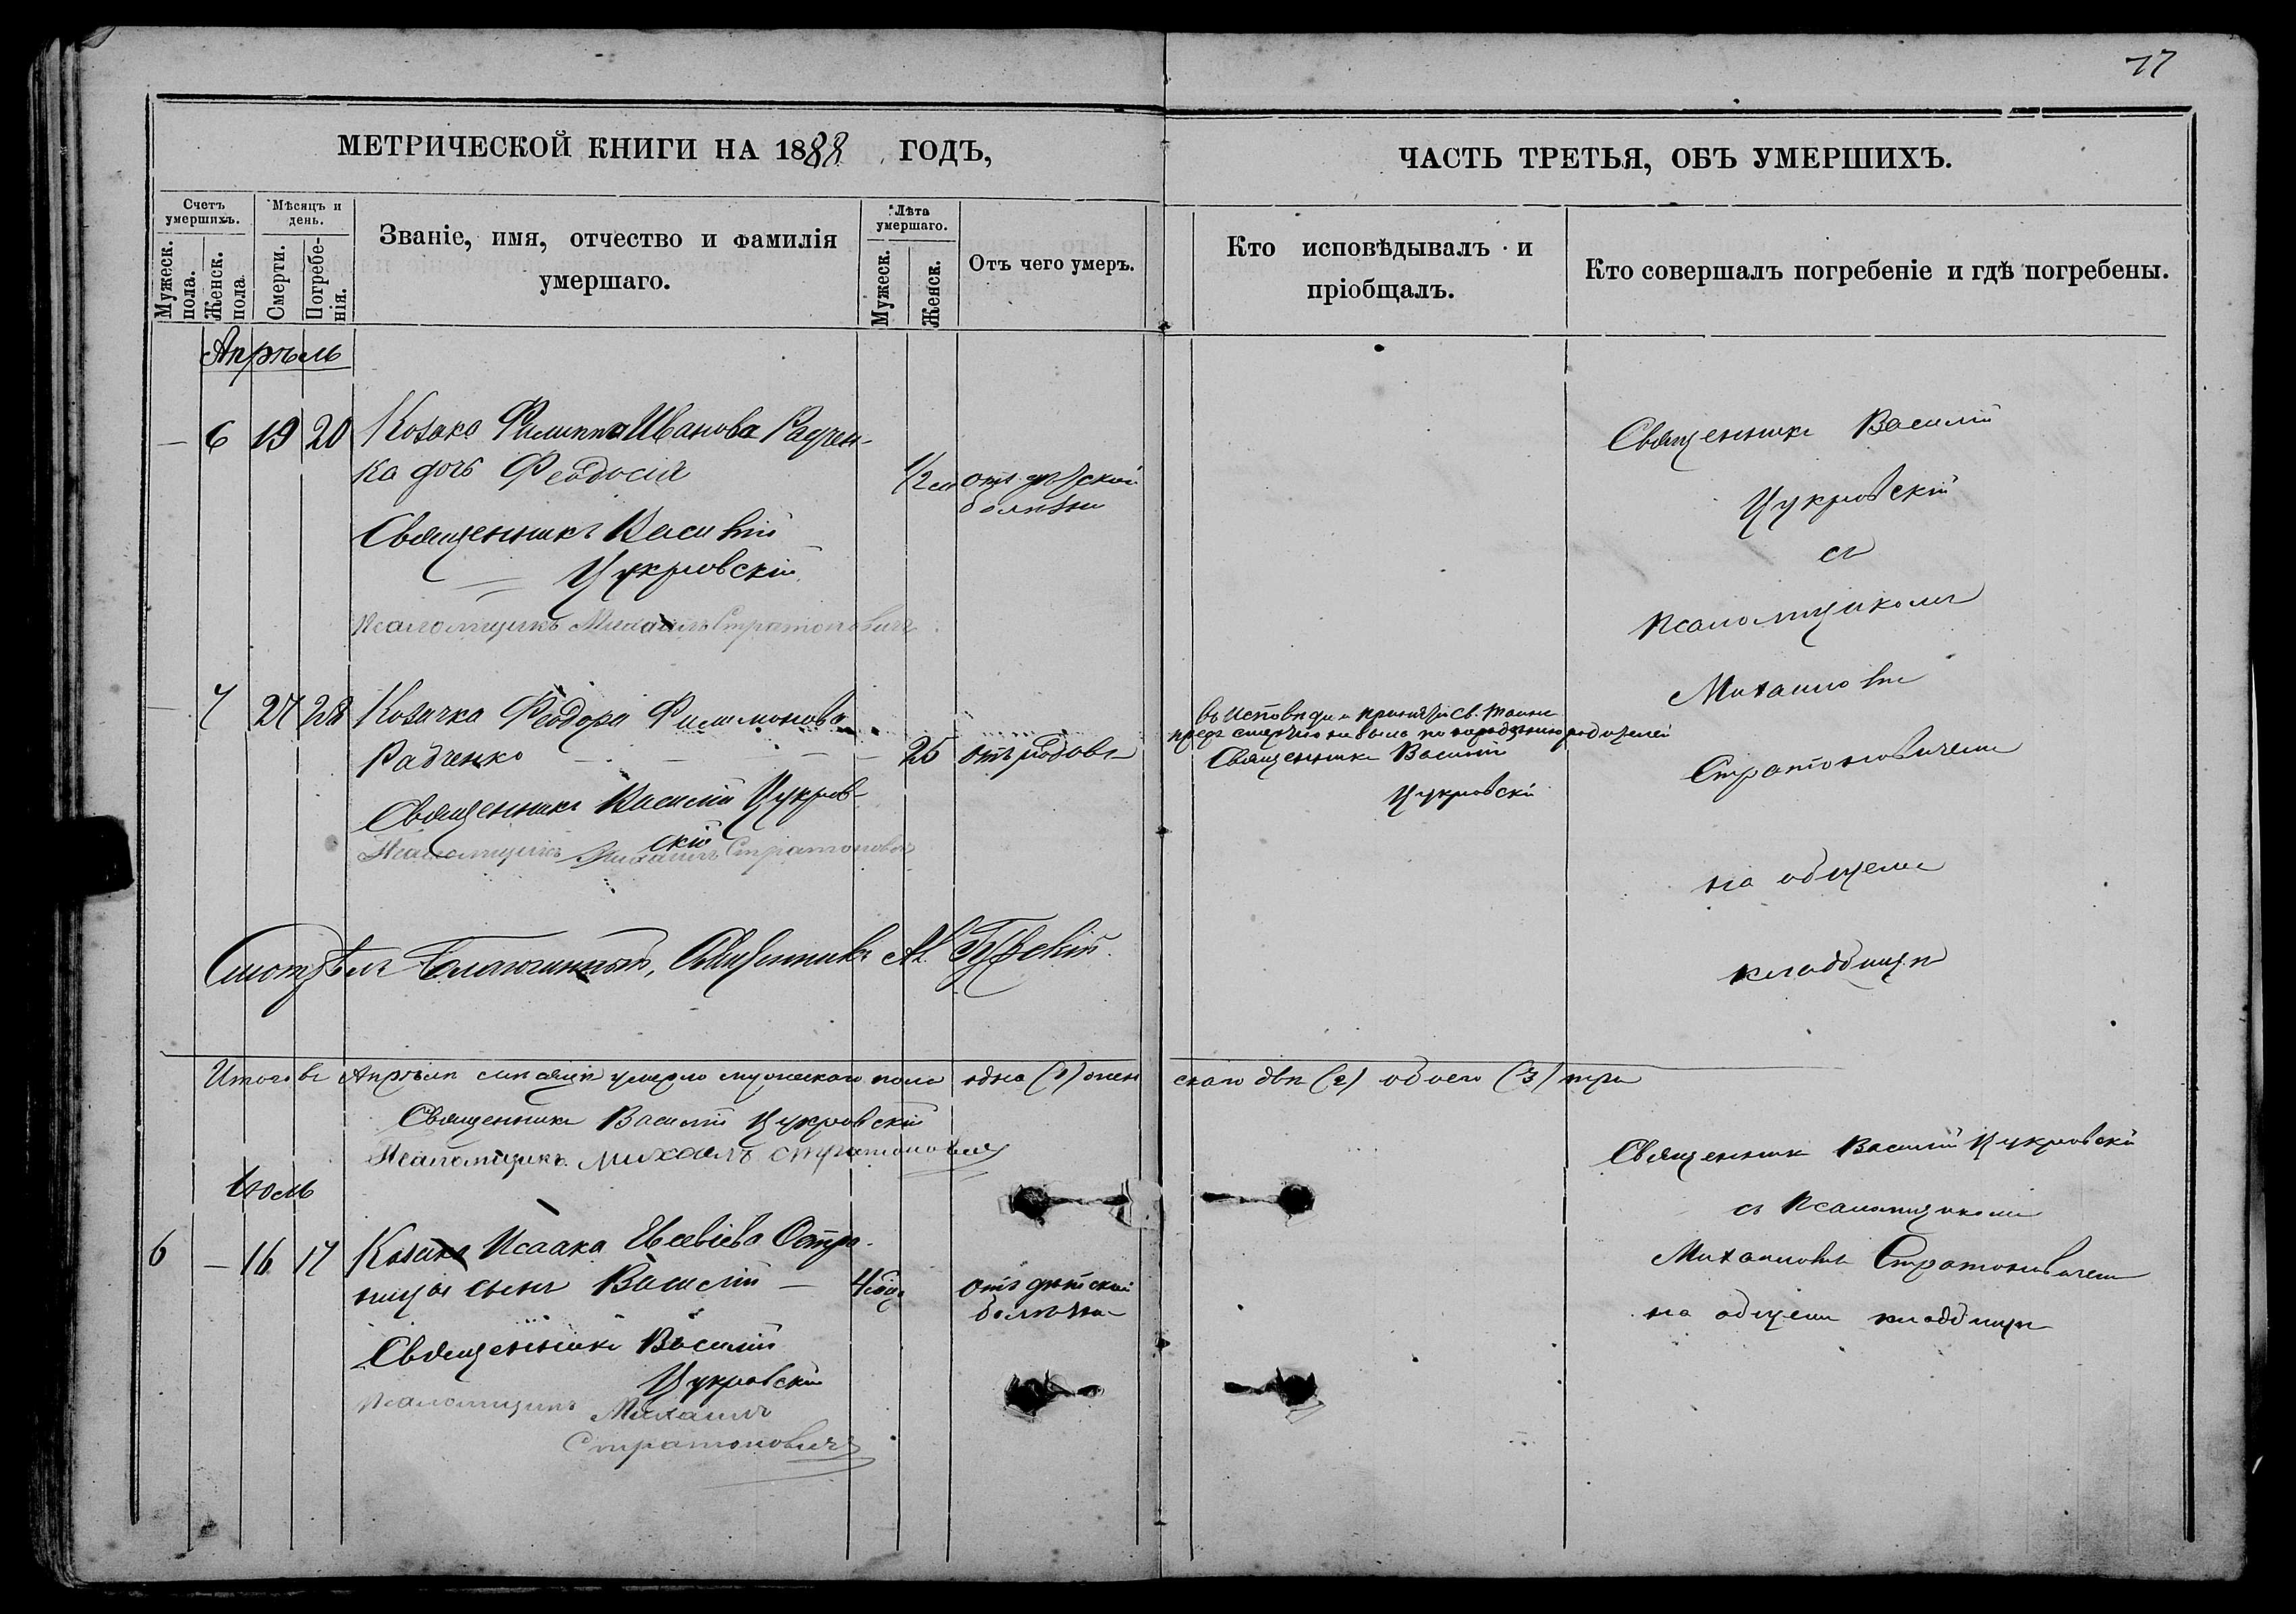 17
МЕТРИЧЕСКОЙ КНИГИ НА 1888 ГОДЪ,
ЧАСТЬ ТРЕТЬЯ, ОБЪ УМЕРШИХЪ.
Счетъ умершихъ.
Мужеск. пола.
Женск. пола.
Мѣсяцъ и день.
Смерти.
Погребенія.
Званіе, имя, отчество и фамилія
умершаго.
Лѣта умершаго.
Мужеск.
Женск.
Отъ чего умеръ.
Кто исповѣдывалъ и
пріобщалъ.
Кто совершалъ погребеніе и гдѣ погребены.
Апрѣль
— 6 19 20 Козака Филиппа Иванова Радчен-
ка дочь Феодосія 1/2 отъ дѣтской
болѣзни
Священникъ Василій
Цукровскій
Псаломщикъ Михаилъ Стратоновичъ
Священникъ Василій
Цукровскій
съ
псаломщикомъ
Михаиломъ
Стратоновичемъ
на общемъ
кладбищѣ
— 7 27 28 Козачка Феодора Филимонова
Радченко — 25 отъ родовъ
Священникъ Василій Цукров-
скій
Псаломщикъ Михаилъ Стратоновичъ
въ исповѣди и принятіи Св. Таинъ
предъ смертію не была по
Священникъ Василій
Цукровскій
Смотрѣлъ Благочинный, Священникъ
Итого въ Апрѣлѣ мѣсяцѣ умерло мужескаго пола одна (1) женскаго двѣ (2) обоего (3) три
Священникъ Василій Цукровскій
Псаломщикъ Михаилъ Стратоновичъ
Іюль
6 — 16 17 Козака Исаака Евсевіева Остра-
ница сынъ Василій — 4 года отъ дѣтской
болѣзни
Священникъ Василій
Цукровскій
Псаломщикъ Михаилъ
Стратоновичъ
Священникъ Василій Цукровскій
съ Псаломщикомъ
Михаиломъ Стратоновичемъ
на общемъ кладбищѣ